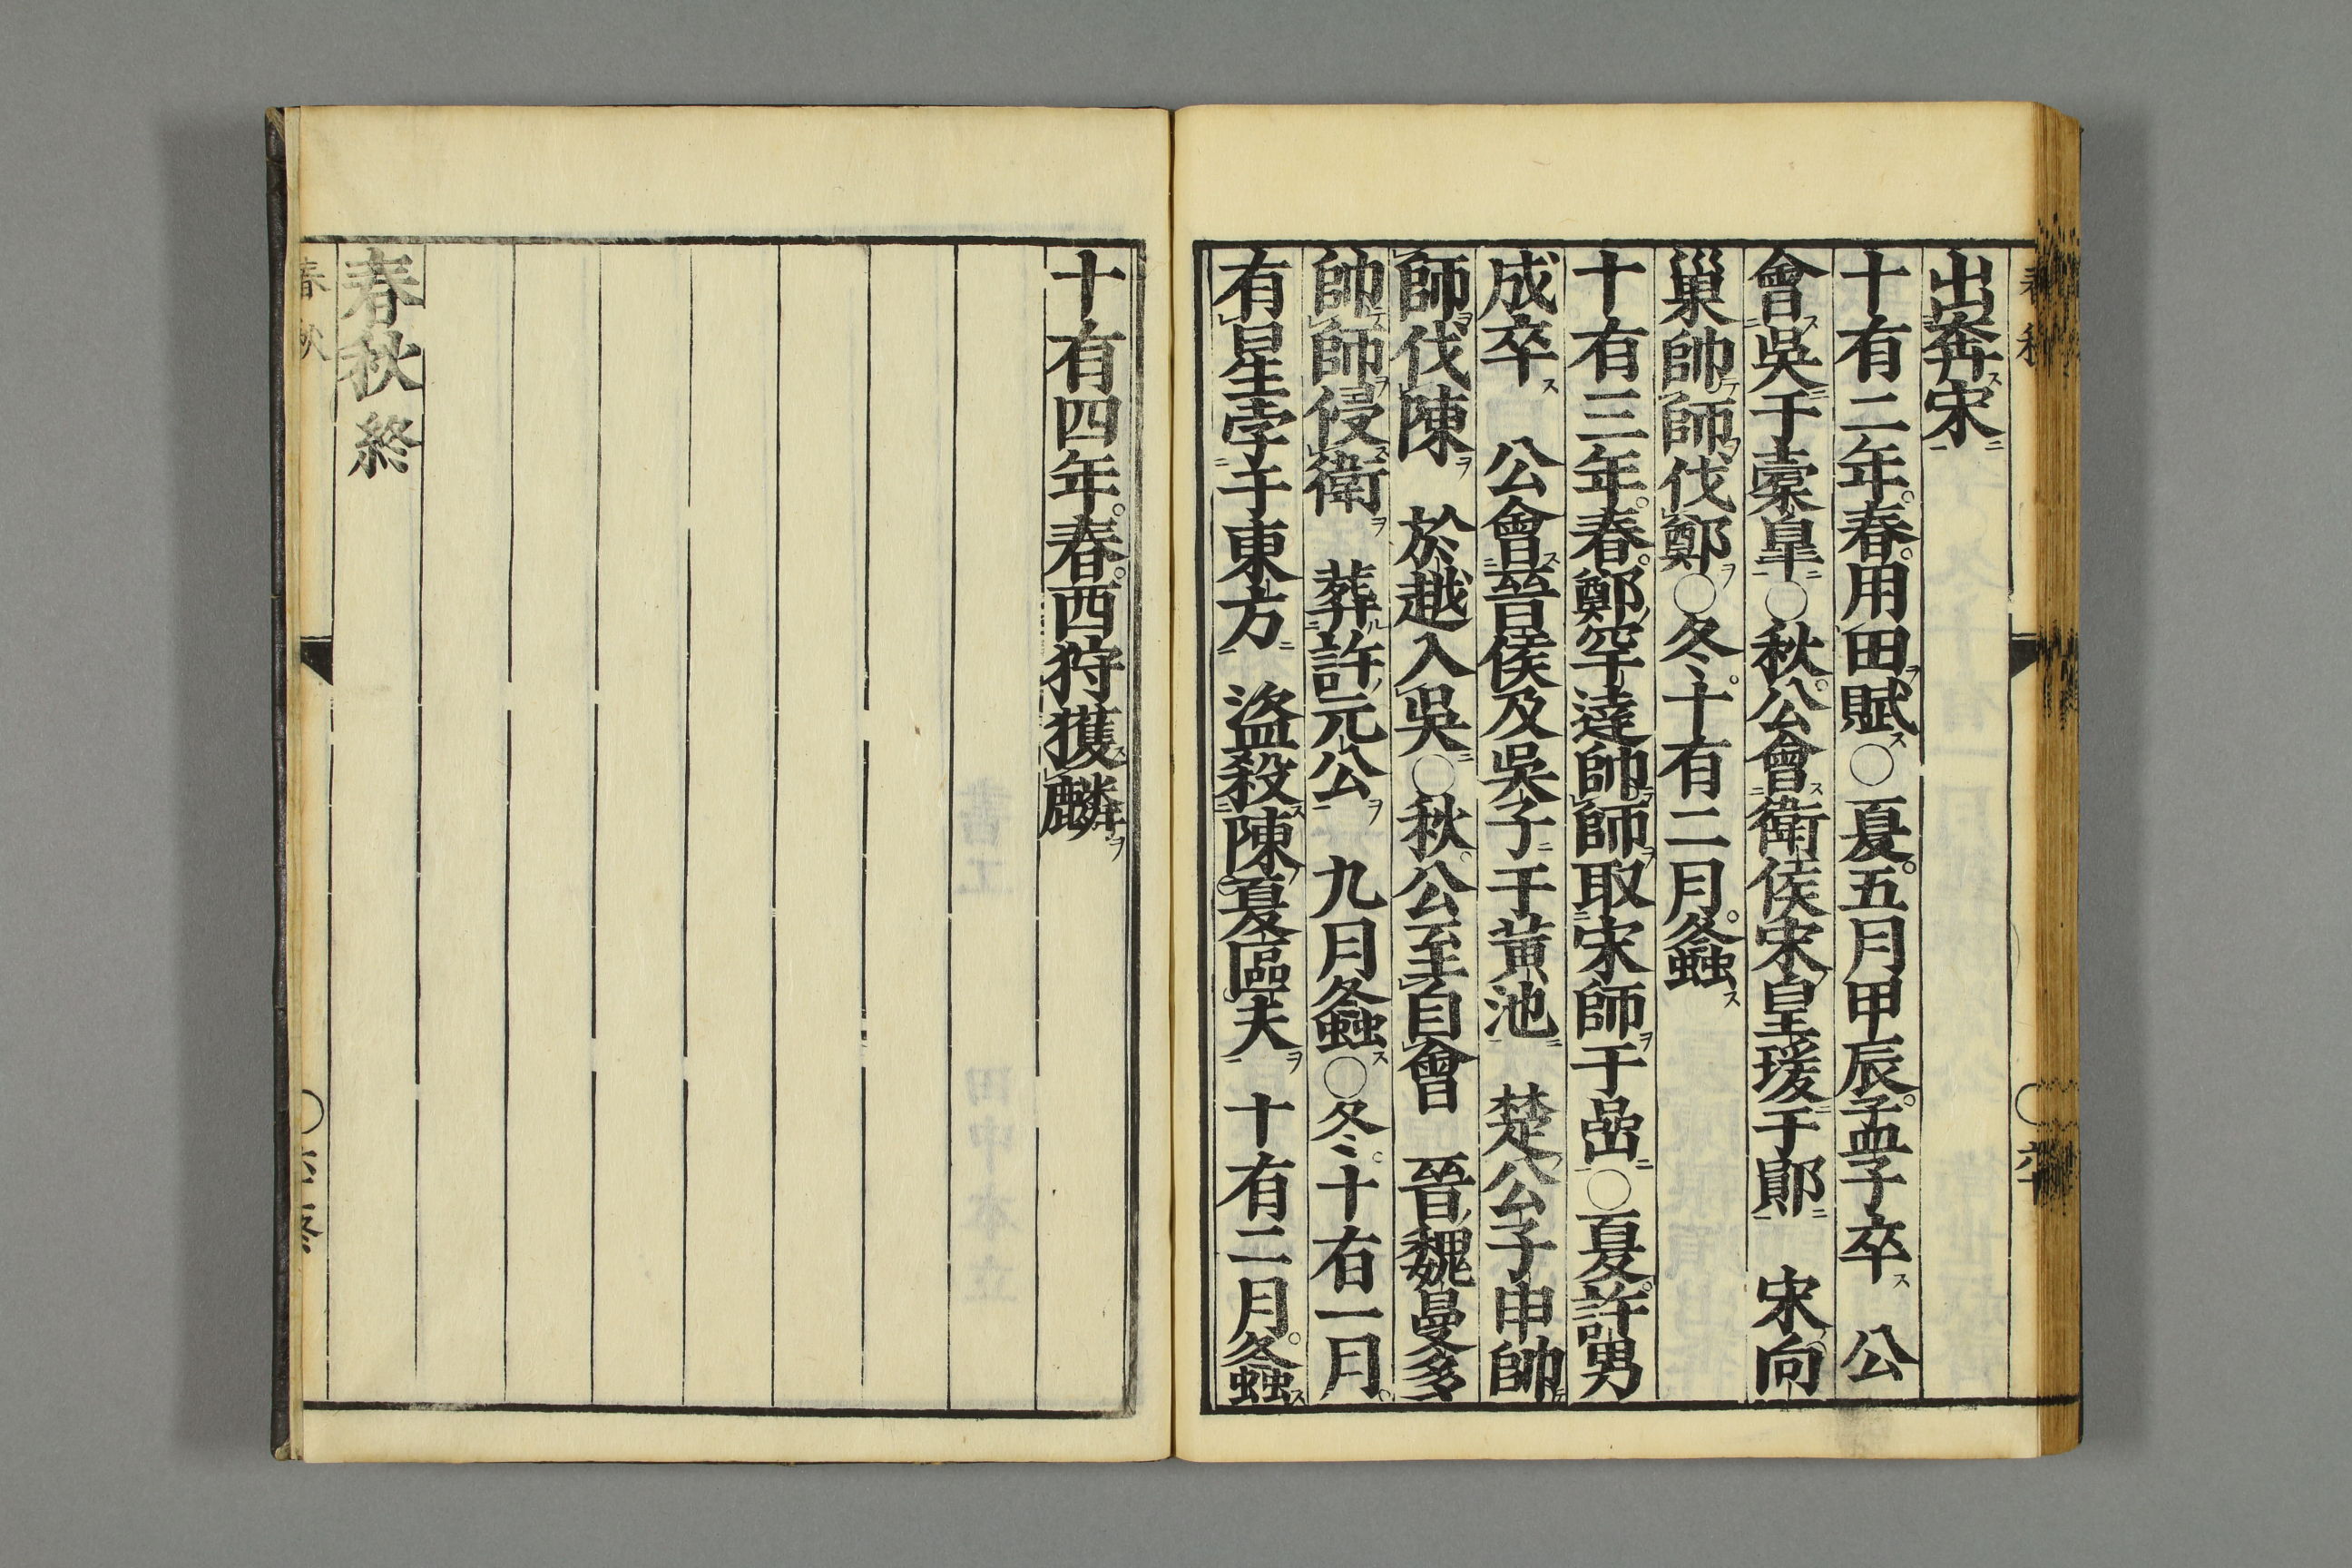 出奔宋
十有二年。春。用田賦○夏。五月甲辰。孟子卒 公
會吳于橐皐○秋。公會衛侯宋皇瑗于鄖 宋向
巢帥師伐鄭○冬。十有二月。螽
十有三年。春。鄭罕達帥師取宋師于嵒○夏。許男
成卒 公會晉侯及吳子于黃池 楚公子申帥
師伐陳 於越入吳○秋。公至自會 晉魏曼多
帥師侵衛 葬許元公 九月螽○冬。十有一月。
有星孛于東方 盜殺陳夏區夫 十有二月。螽
十有四年。春。西狩獲麟
春秋終
春秋